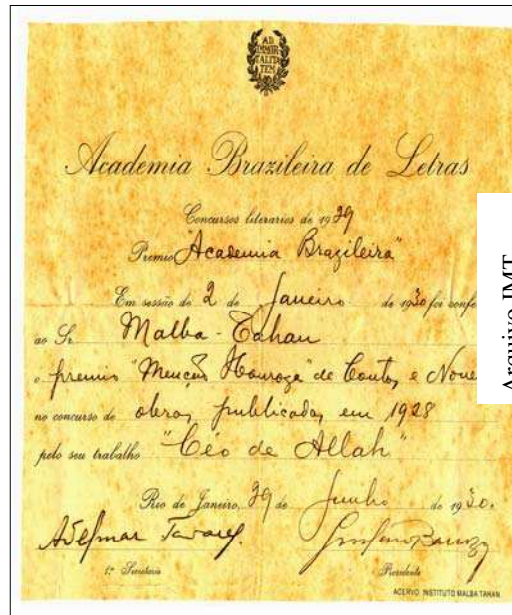 AD
IMMOR
TALITA
TEM
Academia Brazileira de Letras
Concursos literarios de 1929
Premio "Academia Brazileira"
Em sessão de 2 de Janeiro de 1930 foi confe
ao Sr. Malba-Tahan
o premio "Menção Honroza" de Contos e Nove
no concurso de obras publicadas em 1928
pelo seu trabalho "Céo de Allah"
Rio de Janeiro, 29 de Junho de 1930.
Adelmar Tavares.
1º Secretario
Presidente
ACERVO INSTITUTO MALBA TAHAN
Arquivo IMT